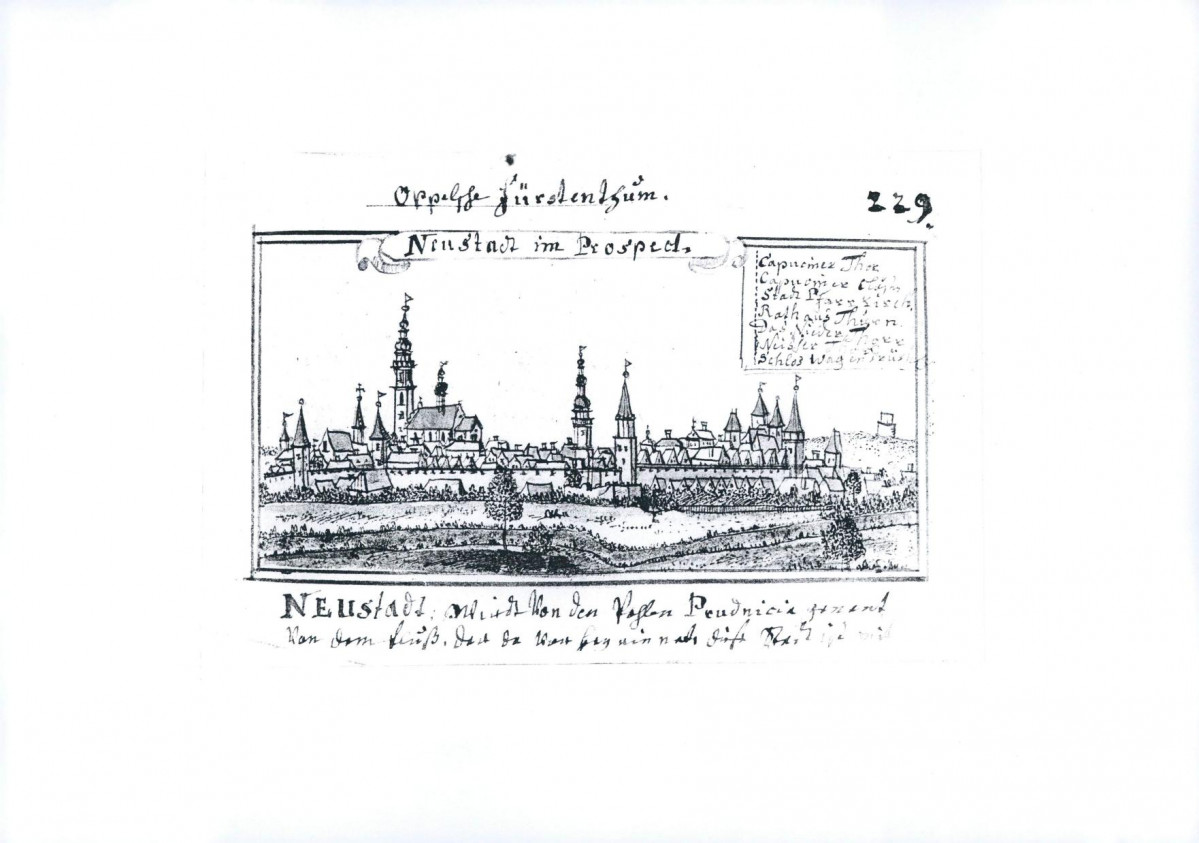 Oppelsche Fürstenthum.
229.
Neustadt im Prospect.
Capuciner Thor
Capuciner
Stadt Pfarr Kirch.
Rathaus Thurn.
Das Nieder
Neisser
Schlos
NEUStadt; Wirdt Von den Pohlen Prudnicia genent
Von dem fluß, der da Vorbey rinnet, dise Stadt ist mit